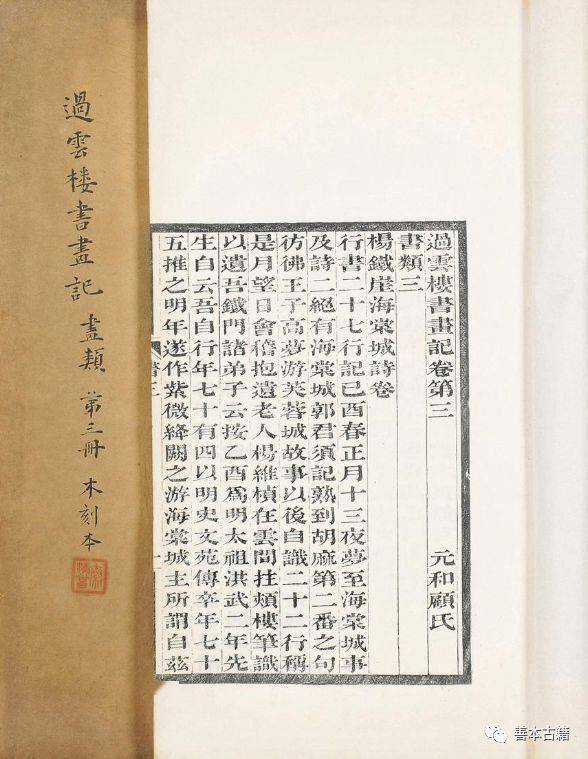 過雲樓書畫記卷第三 元和顧氏
書類三
楊鐵崖海棠城詩卷
行書二十七行記己酉春正月十三夜夢至海棠城事
及詩二絕有海棠城郭君須記熟到胡麻第二番之句
彷彿王子高夢游芙蓉城故事以後自識二十二行稱
是月望日會稽抱遺老人楊維楨在雲間拄頰樓筆識
以遺吾鐵門諸弟子云按乙酉爲明太祖洪武二年先
生自云吾自行年七十有四以明史文苑傳卒年七十
五推之明年遂作紫微絳闕之游海棠城主所謂自茲
過雲楼書畫記 畫類 第三册 木刻本
善本古籍